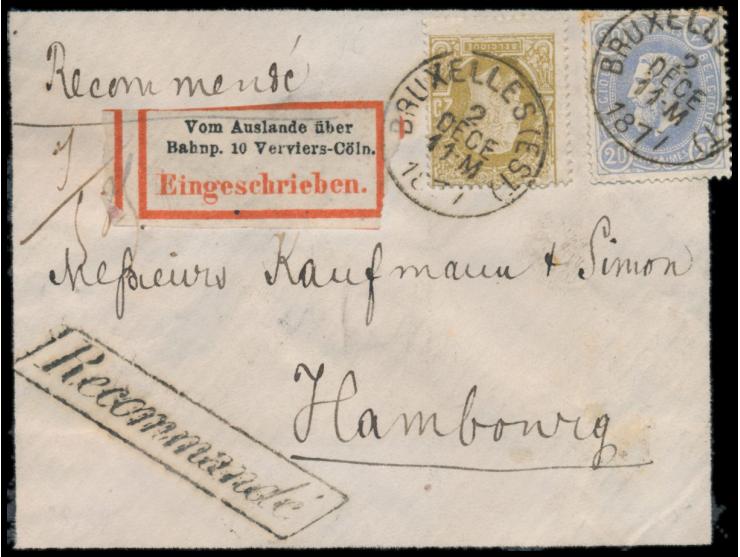 Recommandé
Vom Auslande über
Bahnp. 10 Verviers-Cöln.
Eingeschrieben.
BELGIQUE
BRUXELLES (EST)
2
DÉCE
11-M
1877
BRUXELLES (EST)
2
DÉCE
11-M
1877
BELGIQUE
20
Meſsieurs Kaufmann & Simon
Hambourg
Recommandé